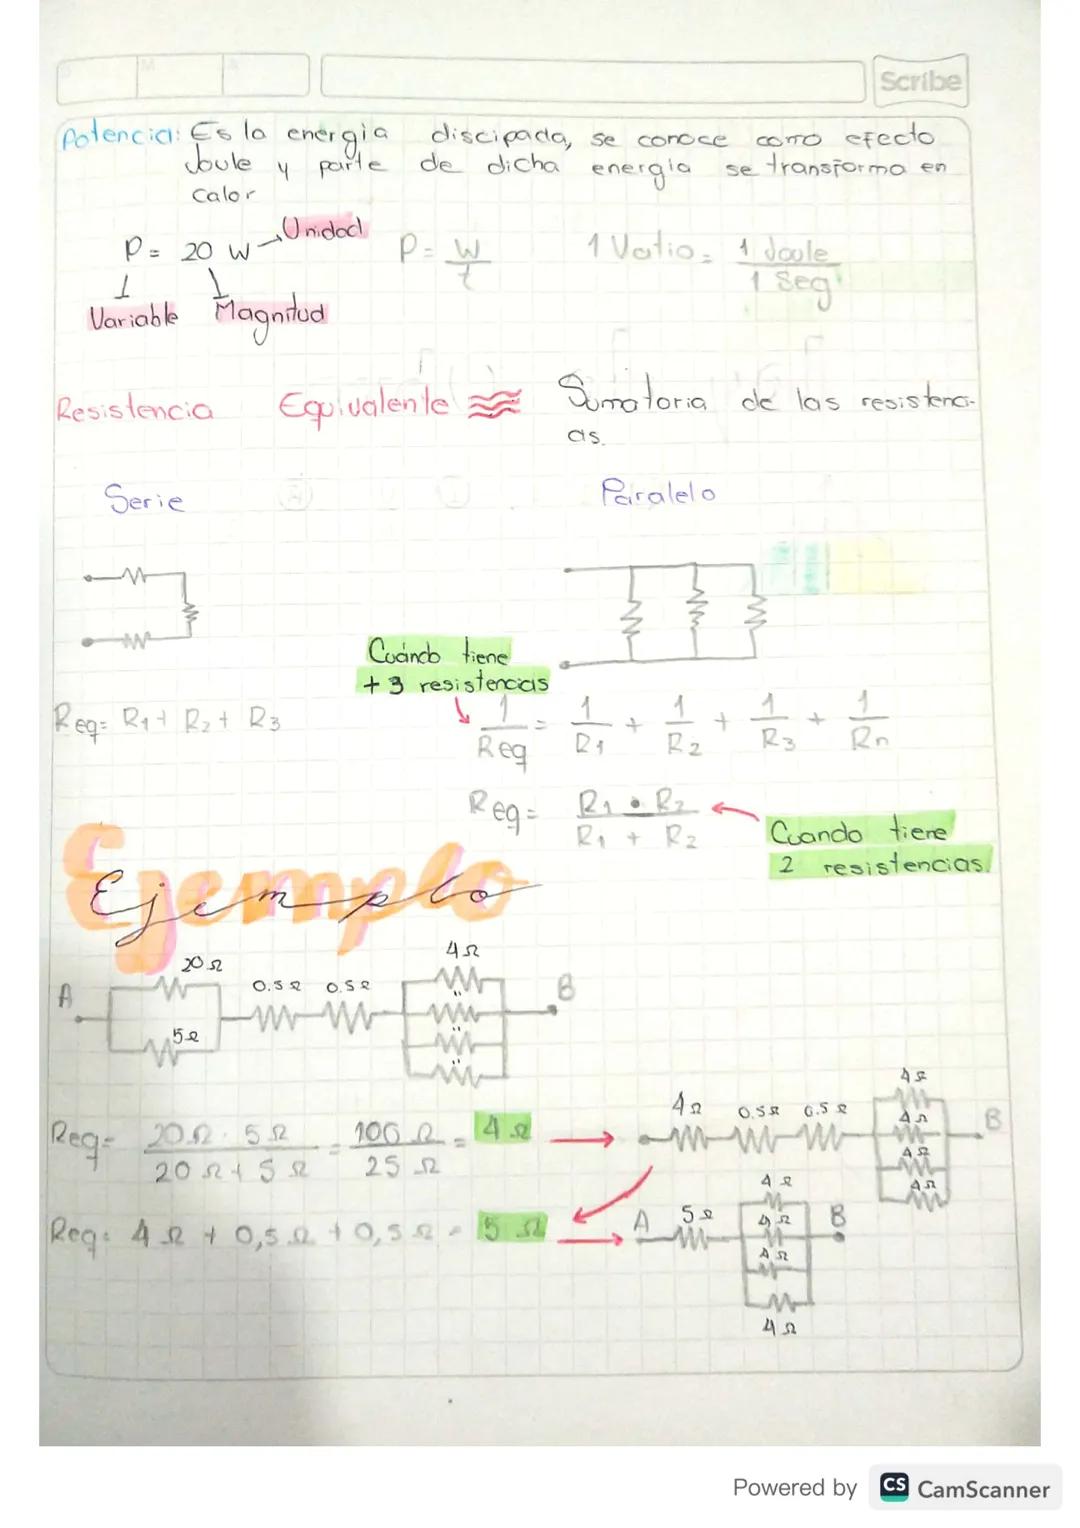 Scribe
Potencia: Es la energia discipada, se conoce como efecto
Joule y parte de dicha energia se transforma en
Calor
P = 20 W → Unidad
P = W/t
1 Vatio = 1 Joule / 1 Seg
Variable Magnitud
Resistencia Equivalente Sumatoria de las resistenci-
as.
Serie Paralelo
Cuándo tiene
+ 3 resistencias
Req = R1 + R2 + R3
1/Req = 1/R1 + 1/R2 + 1/R3 + 1/Rn
Req = R1 • R2 / R1 + R2
Cuando tiene
2 resistencias.
Ejemplo
A 20Ω 5Ω 0.5Ω 0.5Ω 4Ω " " " B
Req = 20Ω · 5Ω / 20Ω + 5Ω = 100Ω / 25Ω = 4Ω
4Ω 0.5Ω 0.5Ω 4Ω 4Ω 4Ω 4Ω B
Req = 4Ω + 0,5Ω + 0,5Ω = 5Ω
A 5Ω 4Ω 4Ω 4Ω 4Ω B
Powered by CS CamScanner